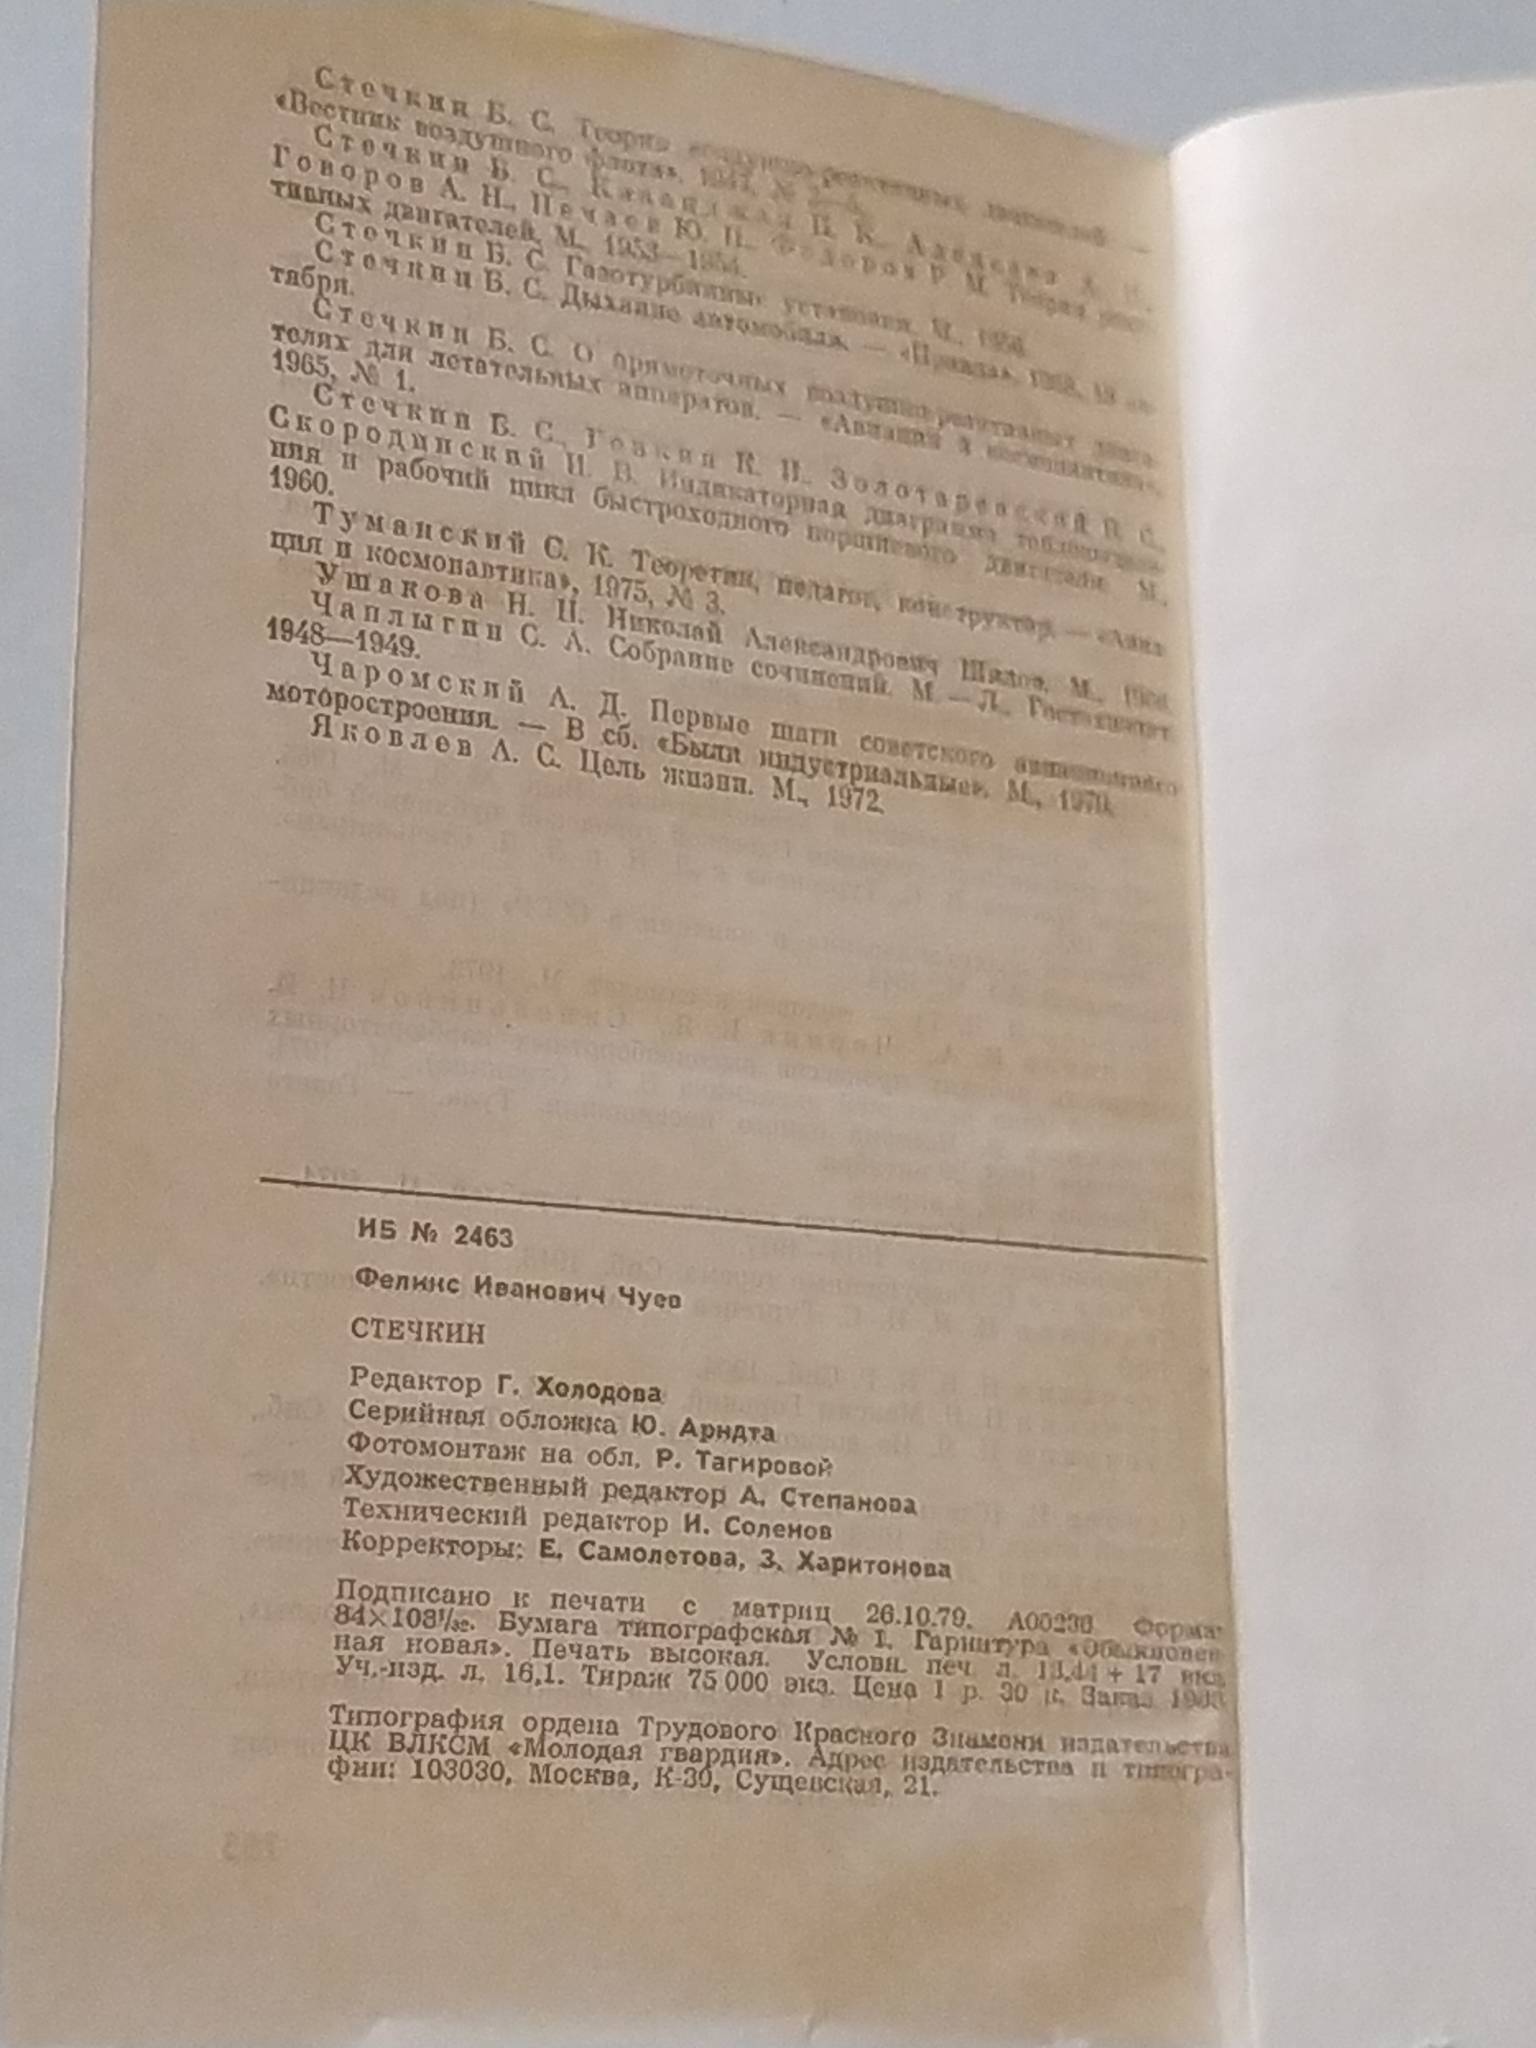 Стечкин Б. С. Теория воздушно-реактивных двигателей. —
«Вестник воздушного флота», 1947, №
Стечкин Б. С., Казанджан П. К., Алексеев Л. П.,
Говоров А. Н., Нечаев Ю. Н., Федоров Р. М. Теория реак-
тивных двигателей. М., 1953—1954.
Стечкин Б. С. Газотурбинные установки. М., 1956.
Стечкин Б. С. Дыхание автомобиля. — «Правда», 18 ок-
тября.
Стечкин Б. С. О прямоточных воздушно-реактивных двига-
телях для летательных аппаратов. — «Авиация и космонавтика»,
1965, № 1.
Стечкин Б. С., Генкин К. И., Золотаревский В. С.,
Скородинский И. В. Индикаторная диаграмма тепловыделе-
ния и рабочий цикл быстроходного поршневого двигателя. М.,
1960.
Туманский С. К. Теоретик, педагог, конструктор. — «Авиа-
ция и космонавтика», 1975, № 3.
Ушакова Н. Н. Николай Александрович Шилов. М.,
Чаплыгин С. А. Собрание сочинений. М. — Л., Гостехиздат
1948—1949.
Чаромский А. Д. Первые шаги советского авиационного
моторостроения. — В сб. «Были индустриальные». М., 1970.
Яковлев А. С. Цель жизни. М., 1972.
ИБ № 2463
Феликс Иванович Чуев
СТЕЧКИН
Редактор Г. Холодова
Серийная обложка Ю. Арндта
Фотомонтаж на обл. Р. Тагировой
Художественный редактор А. Степанова
Технический редактор И. Соленов
Корректоры: Е. Самолетова, З. Харитонова
Подписано к печати с матриц 26.10.79. А00236. Формат
84×108¹/₃₂. Бумага типографская № 1. Гарнитура «Обыкновен-
ная новая». Печать высокая. Условн. печ. л. 13,44 + 17 вкл.
Уч.-изд. л. 16,1. Тираж 75 000 экз. Цена 1 р. 30 к. Заказ
Типография ордена Трудового Красного Знамени издательства
ЦК ВЛКСМ «Молодая гвардия». Адрес издательства и типогра-
фии: 103030, Москва, К-30, Сущевская, 21.